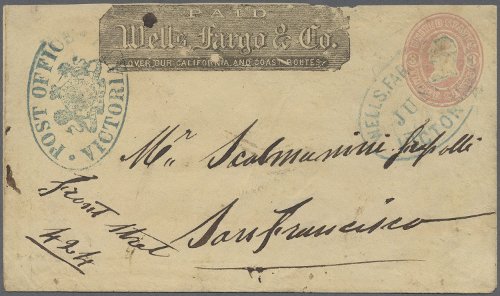 PAID
Wells, Fargo & Co.
OVER OUR CALIFORNIA AND COAST ROUTES
POST OFFICE
VICTORIA
WELLS, FAR
JU
VICTOR
Mr. Scalmanini
San Francisco
Front Street
424